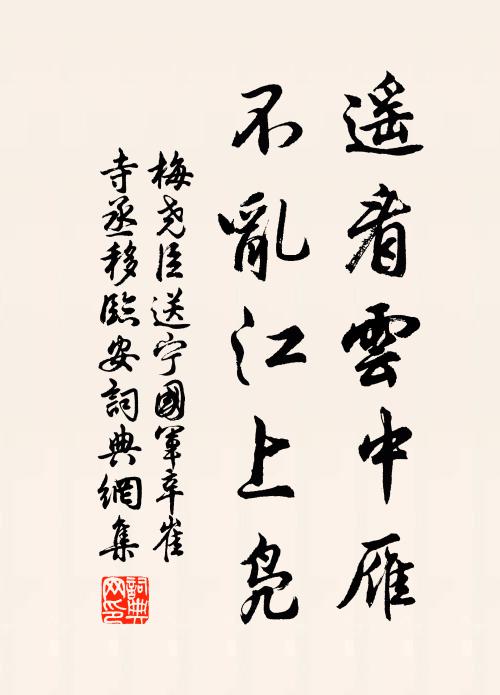 遥看雲中雁
不亂江上鳧
梅尧臣送宁國軍卒崔
寺丞移臨安詞典網集
詞典
网印